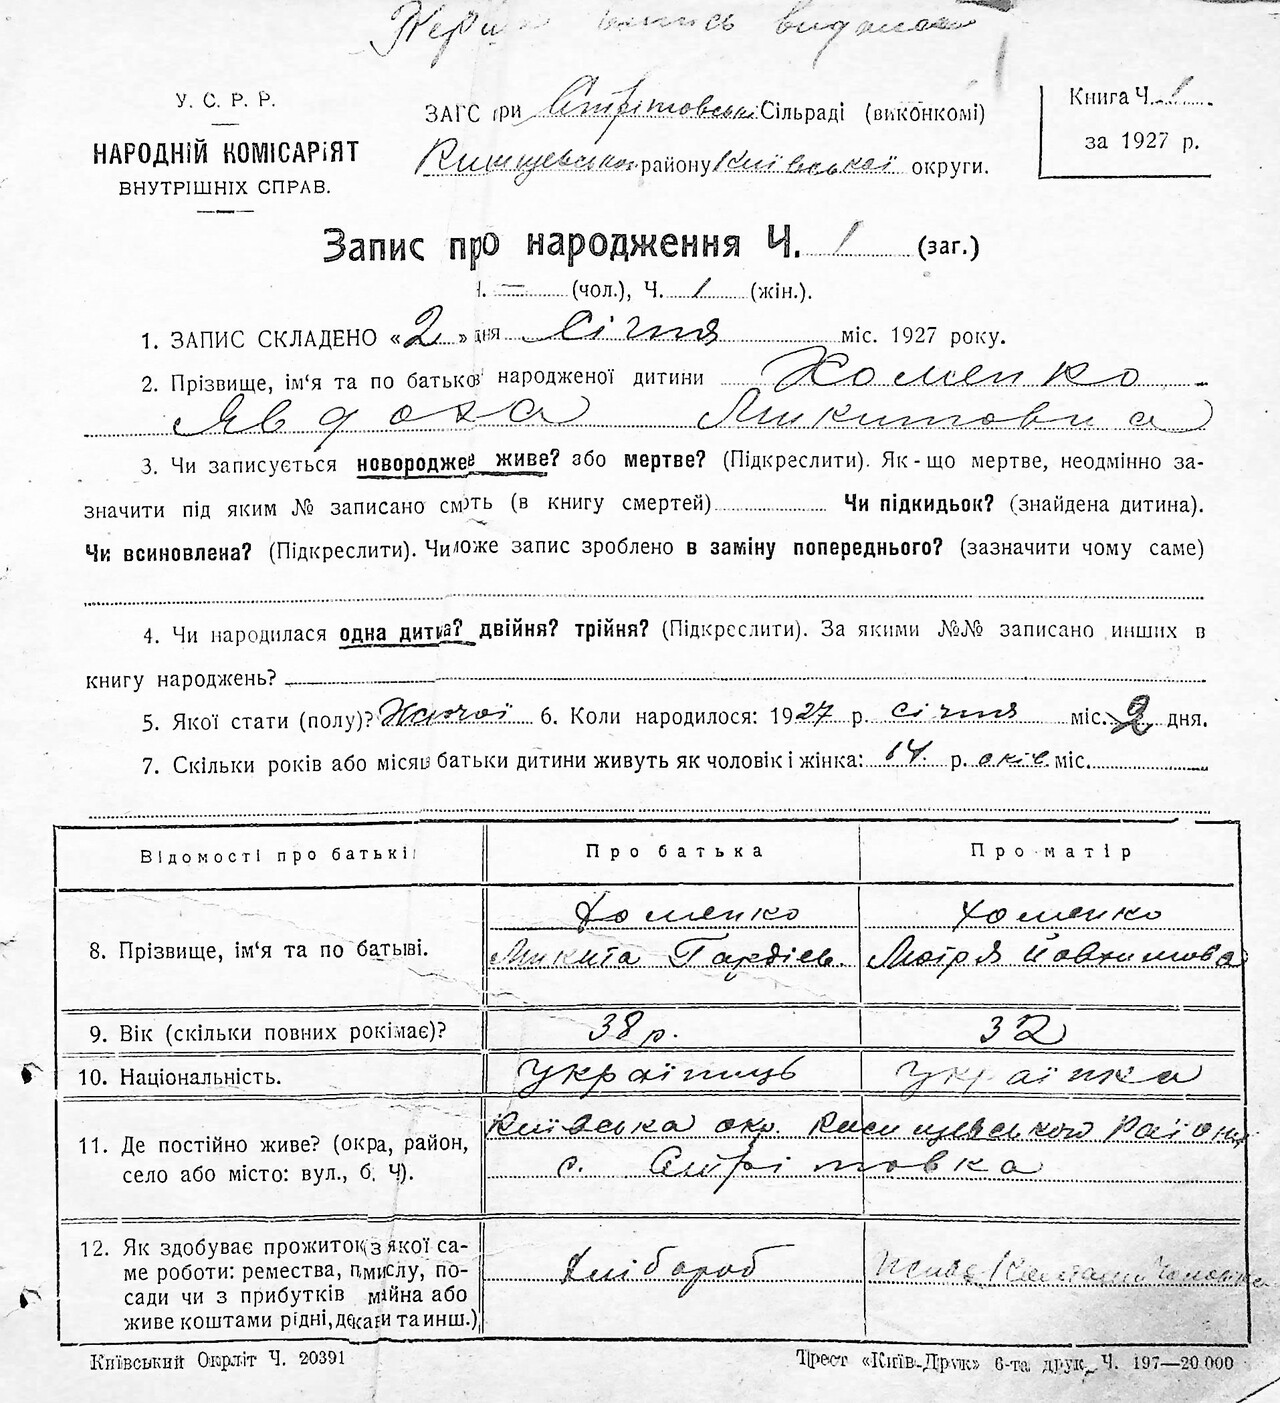 У. С. Р. Р.
НАРОДНІЙ КОМІСАРІЯТ
ВНУТРІШНІХ СПРАВ.
ЗАГС при Стрітовській Сільраді (виконкомі)
району Київської округи.
Книга Ч. 1
за 1927 р.
Запис про народження Ч. 1 (заг.)
Ч. — (чол.), Ч. 1 (жін.).
1. ЗАПИС СКЛАДЕНО «2» дня Січня міс. 1927 року.
2. Прізвище, ім'я та по батькові народженої дитини Хоменко
Явдоха Микитовна
3. Чи записується новороджен живе? або мертве? (Підкреслити). Як-що мертве, неодмінно за-
значити під яким № записано смерть (в книгу смертей) Чи підкидьок? (знайдена дитина).
Чи всиновлена? (Підкреслити). Чи може запис зроблено в заміну попереднього? (зазначити чому саме)
4. Чи народилася одна дитина? двійня? трійня? (Підкреслити). За якими №№ записано инших в
книгу народжень?
5. Якої стати (полу)? Жіночої 6. Коли народилося: 1927 р. січня міс. 2 дня.
7. Скільки років або місяців батьки дитини живуть як чоловік і жінка: 14. р. міс.
Відомості про батьків Про батька Про матір
8. Прізвище, ім'я та по батькові.
Хоменко Хоменко
Микита Мотря
9. Вік (скільки повних років має)? 38 р. 32
10. Національність. Українець Українка
11. Де постійно живе? (округа, район,
село або місто: вул., б. Ч).
Київська окр. Району
с. Стрітовка
12. Як здобуває прожиток (з якої са-
ме роботи: ремества, промислу, по-
сади чи з прибутків майна або
живе коштами рідні, держави та инш.)
Хлібороб
Київський Окрліт Ч. 20391
Трест «Київ-Друк» 6-та друк. Ч. 197—20.000